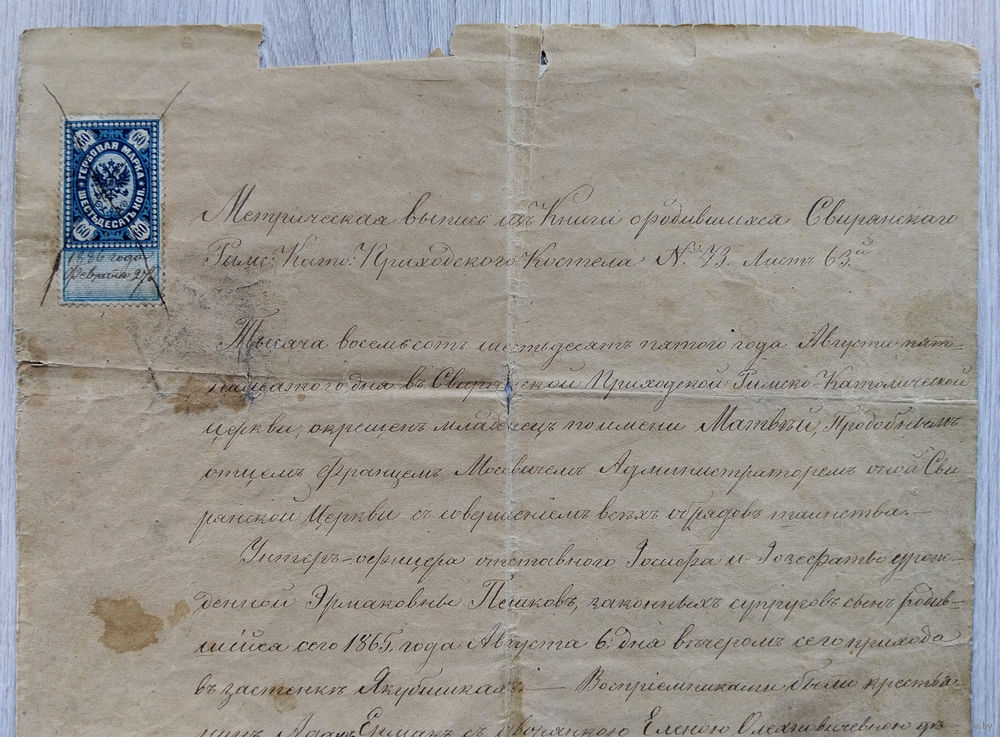 60 60
ГЕРБОВАЯ МАРКА
ШЕСТЬДЕСЯТЪ КОП.
60 60
1886 года
Февраля 27
Метрическая выпись изъ Книги о родившихся Свирянскаго
Римс: Като: Приходского Костела N. 73. Листъ 63.й
Тысяча восемьсотъ шестьдесятъ пятого года Августа пят-
надцатого дня въ Свирянской Приходской Римско-Католической
Церкви, окрещенъ младенецъ по имени Матвѣй, Преподобнымъ
отцемъ Францемъ Администраторемъ оной Сви
рянской Церкви съ совершеніемъ всѣхъ обрядовъ таинства.—
Унтеръ-офицера отставного Іосифа и Іозефаты урож-
денной Эрмаковны Пешковъ, законныхъ супруговъ сынъ родив-
шійся сего 1865. года Августа 6. дня вечеромъ сего прихода
въ застенкѣ Якубишкахъ.— Воспріемниками были крестья
нинъ Адамъ Ермакъ съ дворянкого Еленою